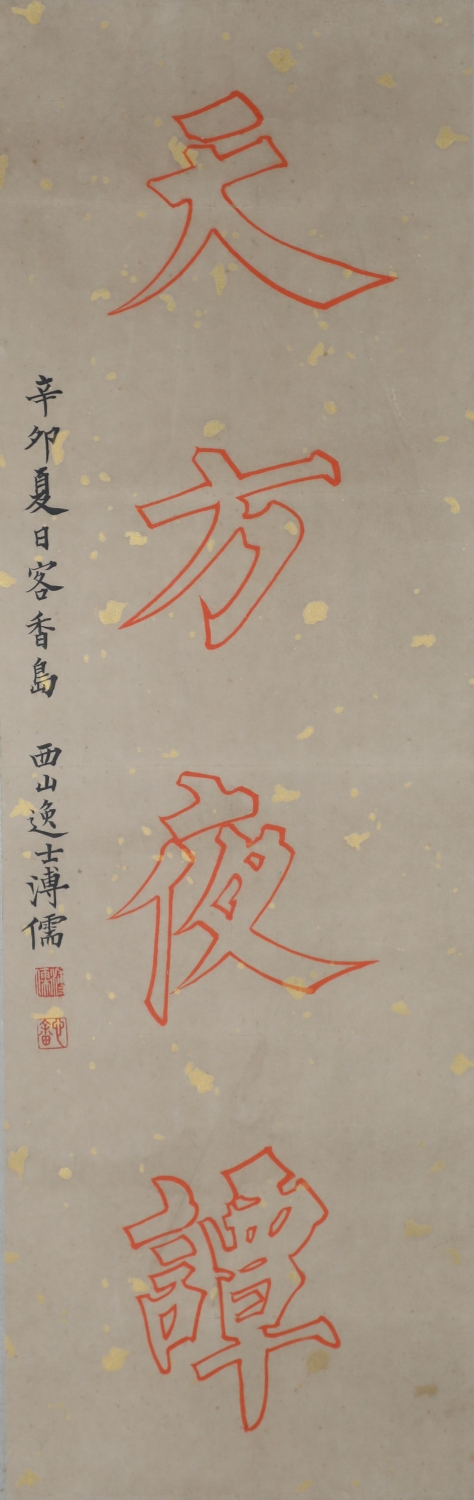 天方夜譚
辛卯夏日客香島 西山逸士溥儒
溥儒